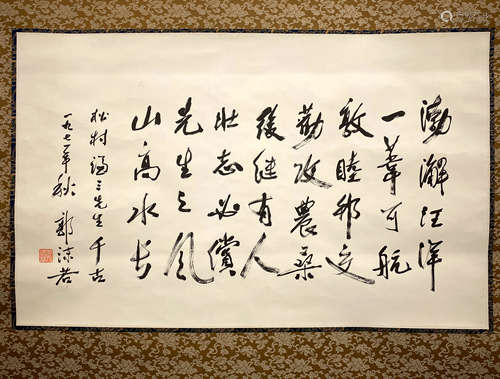 渤澥汪洋
一苇可航
敦睦邦交
劝攻农桑
后继有人
壮志必偿
先生之风
山高水长
松村谦三先生千古
一九七一年秋 郭沫若